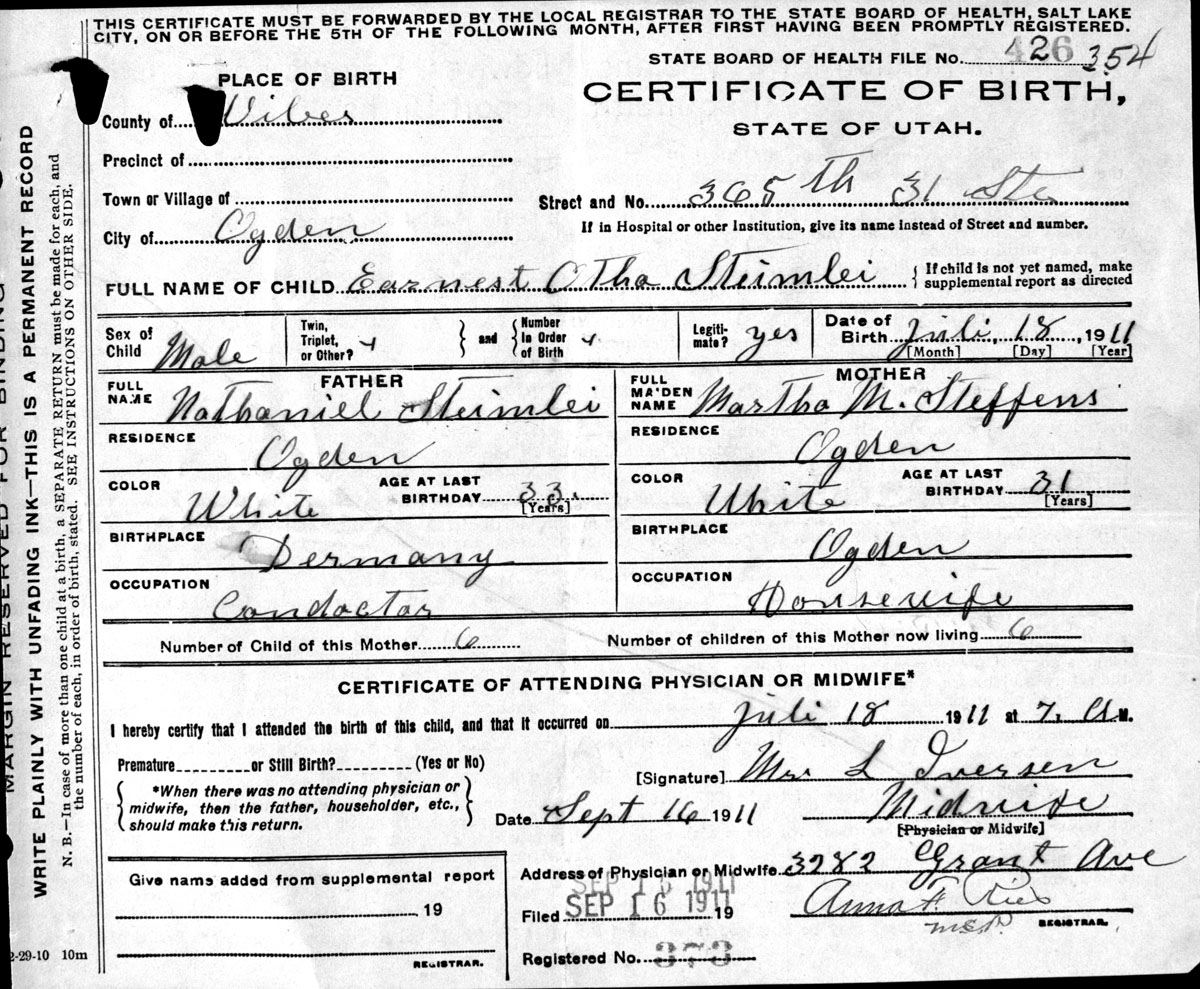 THIS CERTIFICATE MUST BE FORWARDED BY THE LOCAL REGISTRAR TO THE STATE BOARD OF HEALTH, SALT LAKE
CITY, ON OR BEFORE THE 5TH OF THE FOLLOWING MONTH, AFTER FIRST HAVING BEEN PROMPTLY REGISTERED.
STATE BOARD OF HEALTH FILE No. 426 354
PLACE OF BIRTH
CERTIFICATE OF BIRTH,
STATE OF UTAH.
County of
Precinct of
Town or Village of
Street and No. 365th 31 Ste
City of Ogden
If in Hospital or other Institution, give its name instead of Street and number.
FULL NAME OF CHILD Earnest Otha Steimlei
If child is not yet named, make
supplemental report as directed
Sex of Child Male
Twin, Triplet, or Other?
and Number in Order of Birth
Legiti-mate? yes
Date of Birth juli 18, 1911
[Month] [Day] [Year]
FATHER
MOTHER
FULL NAME Nathaniel Steimlei
FULL MAIDEN NAME Martha M. Steffens
RESIDENCE Ogden
RESIDENCE Ogden
COLOR White AGE AT LAST BIRTHDAY 33 [Years]
COLOR White AGE AT LAST BIRTHDAY 31 [Years]
BIRTHPLACE Dermany
BIRTHPLACE Ogden
OCCUPATION Condoctor
OCCUPATION Housewife
Number of Child of this Mother 6 Number of children of this Mother now living 6
CERTIFICATE OF ATTENDING PHYSICIAN OR MIDWIFE*
I hereby certify that I attended the birth of this child, and that it occurred on juli 18 1911 at 7. A M.
Premature or Still Birth? (Yes or No)
[Signature] Mrs L Iversen
*When there was no attending physician or
midwife, then the father, householder, etc.,
should make this return.
Date Sept 16 1911
Midwife
[Physician or Midwife]
Give name added from supplemental report
19
REGISTRAR.
Address of Physician or Midwife 3282 Grant Ave
SEP 16 1911
Filed SEP 16 1911 19
Anna F. Ries
REGISTRAR.
Registered No. 373
MARGIN RESERVED FOR BINDING
WRITE PLAINLY WITH UNFADING INK—THIS IS A PERMANENT RECORD
N. B.—In case of more than one child at a birth, a SEPARATE RETURN must be made for each, and
the number of each, in order of birth, stated. SEE INSTRUCTIONS ON OTHER SIDE.
2-29-10 10m